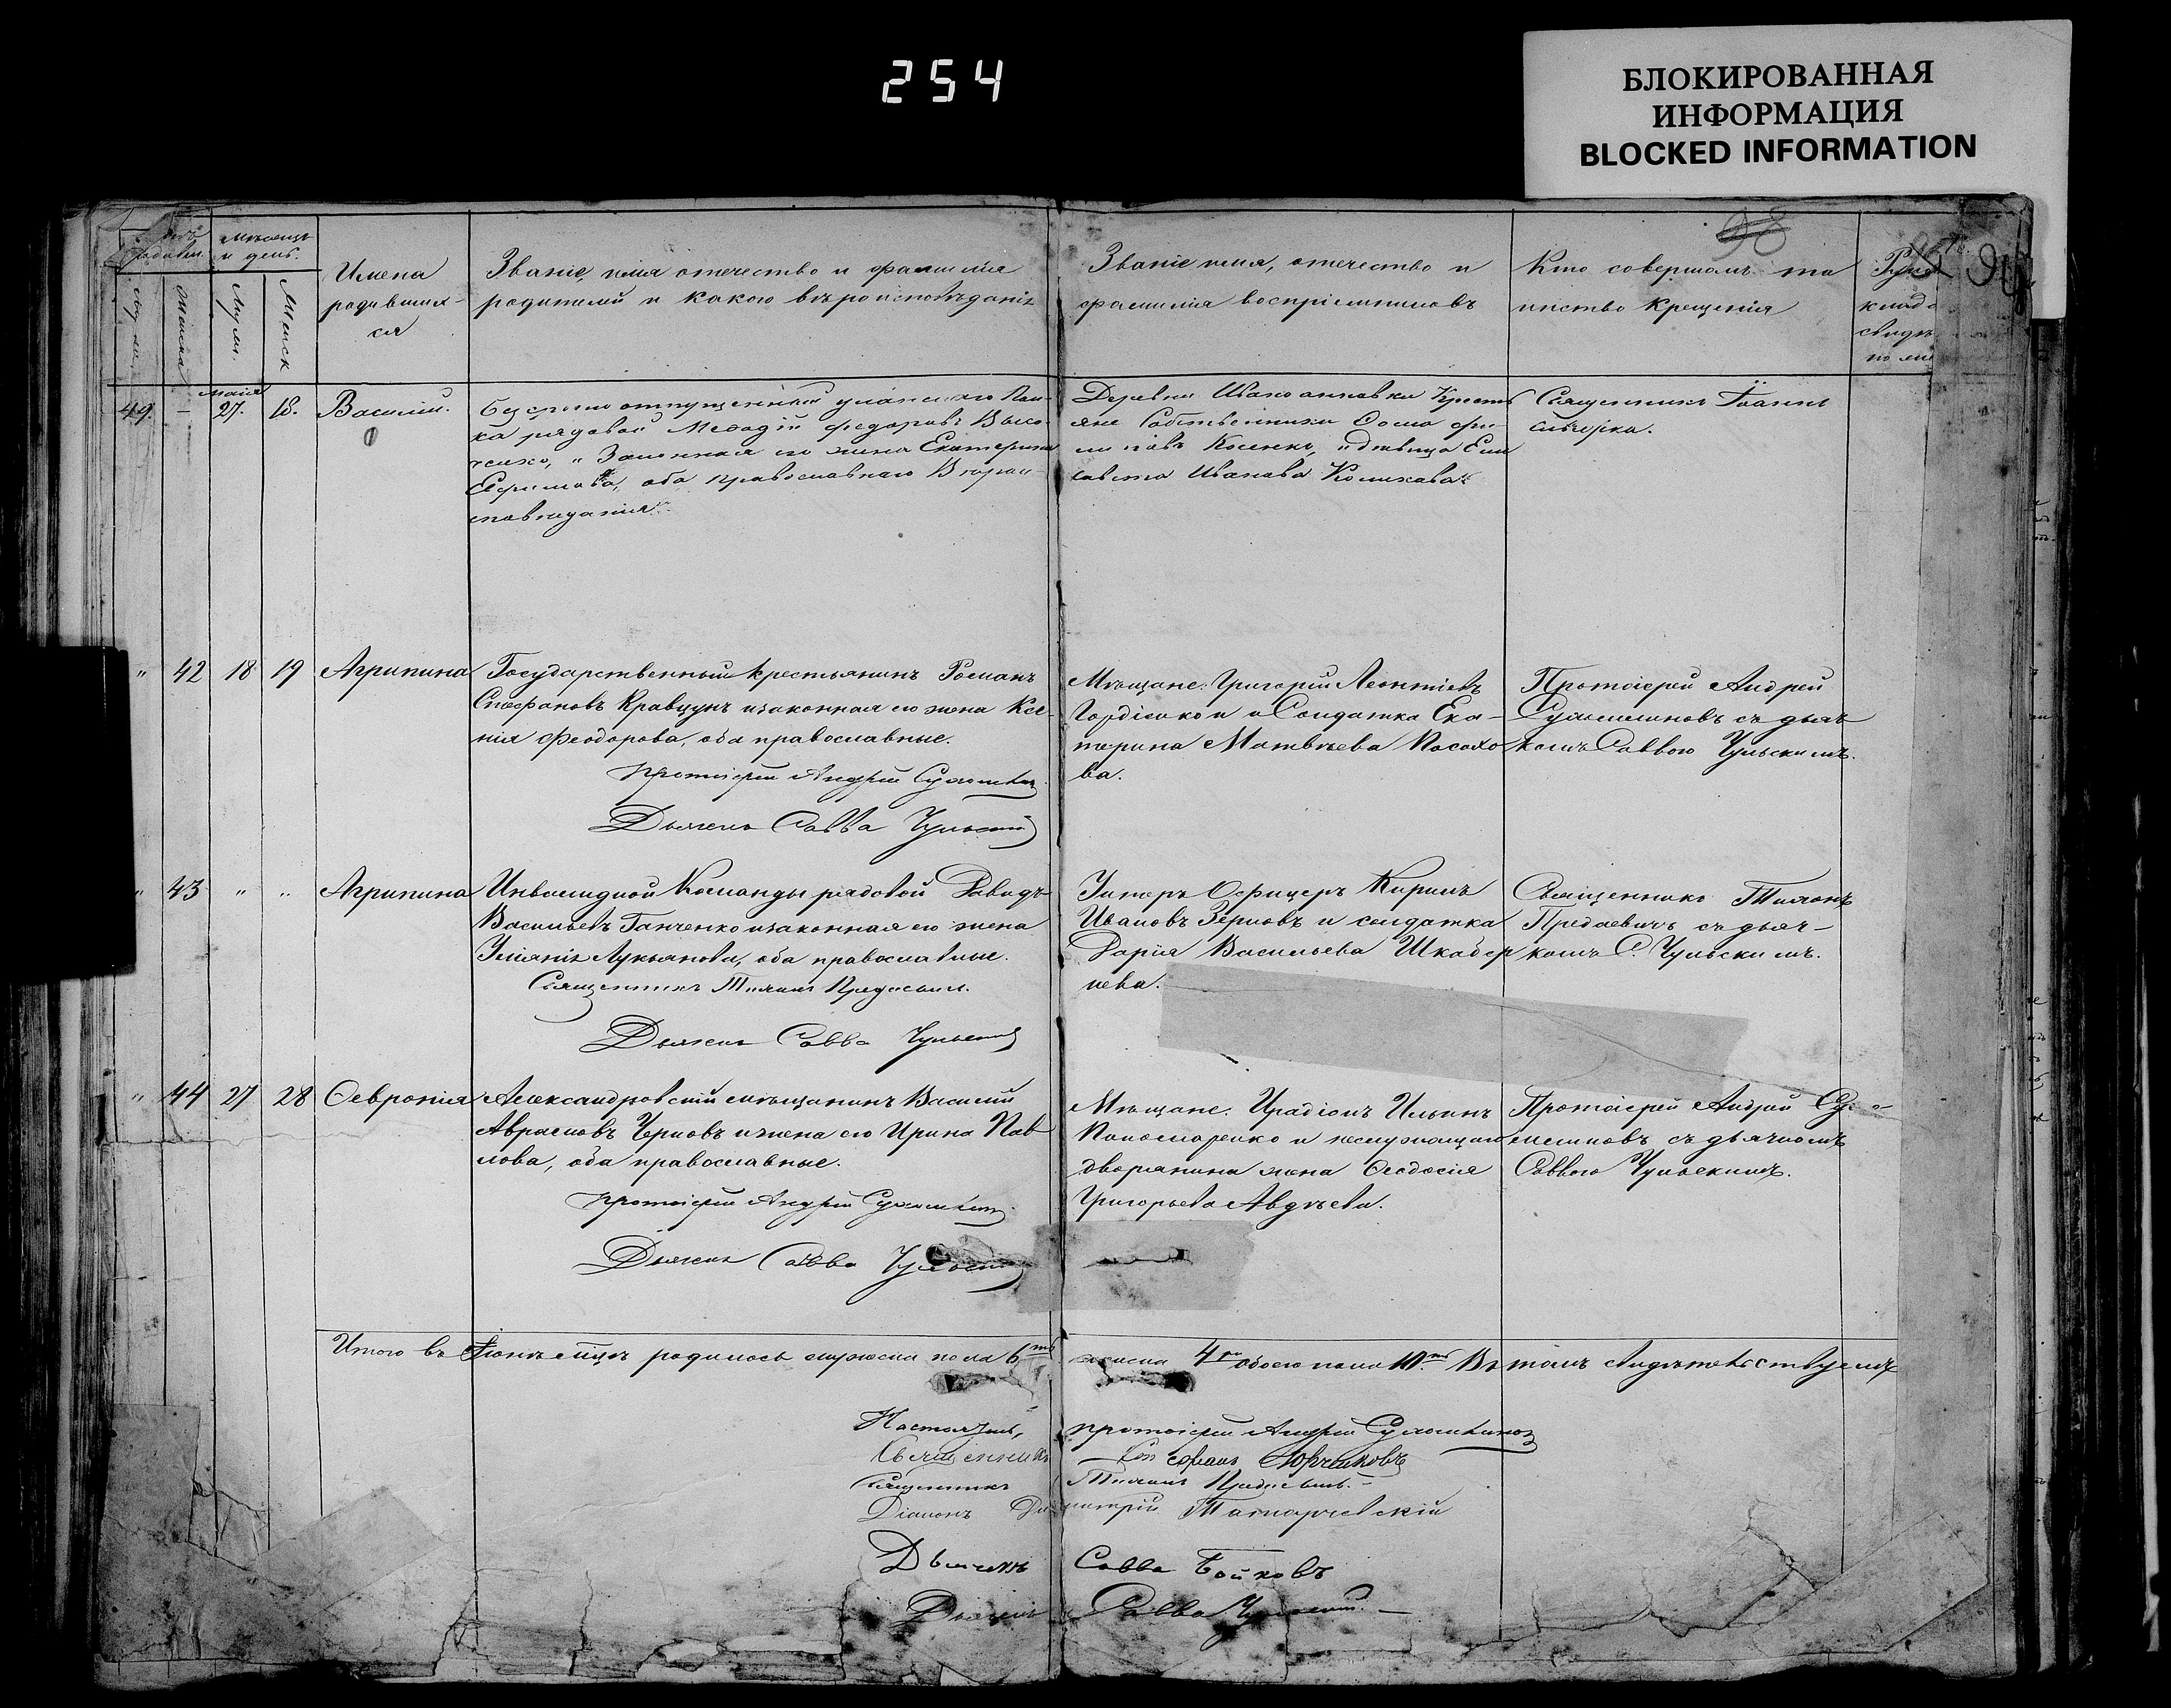 254
БЛОКИРОВАННАЯ
ИНФОРМАЦИЯ
BLOCKED INFORMATION
98
Мѣсяцъ
и день.
Имена
родивших-
ся
Званіе, имя отечество и фамилія
родителей и какого вѣроисповѣданія
Званіе имя, отечество и
фамилія воспріемниковъ
Кто совершалъ та
инство крещенія
49. — маія 27. 18. Василій.
Безсрочно отпущенный уланскаго Пол-
ка рядовой Мефодій Федоровъ
законная его жена Екатерина
Ефимова, оба православнаго Вѣроис-
повѣданія
Деревни Ивано анновки Кресть
яне Собственники Фома Фи-
липовъ Косенко, и дѣвица Ели
савета Иванова
Священникъ Іоаннъ
" 42 18 19 Агрипина
Государственный крестьянинъ Романъ
Стефановъ Кравцунъ и законная его жена Ксе-
нія Феодорова, оба православные.
протоіерей Андрей
Дьячекъ Савва Чульскій
Мѣщане: Григорій Леонтіевъ
Гордіенко и Солдатка Ека-
терина Матвѣева Посохо
ва.
Протоіерей Андрей
съ дьяч
комъ Саввою Чульскимъ.
" 43 " " Агрипина
Инвалидной Команды рядовой Давидъ
Васильевъ Ганченко и законная его жена
Уліанія Лукьянова, оба православные.
Священникъ Тимонъ
Дьячекъ Савва Чульскій
Унтеръ Офицеръ Кирилъ
Ивановъ Зерновъ и солдатка
Дарія Васильева Шкабер
нева.
Священникъ Тимонъ
съ дьяч-
комъ С. Чульскимъ.
" 44 27 28 Февронія
Александровскій мѣщанинъ Василій
Аврамовъ Черновъ и жена его Ирина Пав
лова, оба православные.
протоіерей Андрей
Дьячекъ Савва Чульскій
Мѣщане: Ирадіонъ Ильинъ
Пономаренко и неслужащаго
дворянина жена Феодосія
Григорьева Авдѣева.
Протоіерей Андрей
съ дьячкомъ
Саввою Чульскимъ.
Итого въ родилось мужеска пола 6 женска 4 обоего пола 10. Въ томъ свидѣтельствуемъ
Настоятель, протоіерей Андрей
Священникъ
Священникъ Тимонъ
Діаконъ Димитрій
Дьячекъ Савва Бойковъ
Дьячекъ Савва Чульскій